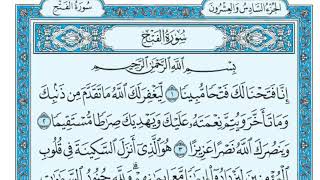 الجزء السادس والعشرون
سورة الفتح
سُورَةُ الفَتْحِ
بِسْمِ اللَّهِ الرَّحْمَٰنِ الرَّحِيمِ
إِنَّا فَتَحْنَا لَكَ فَتْحًا مُّبِينًا ١ لِّيَغْفِرَ لَكَ اللَّهُ مَا تَقَدَّمَ مِن ذَنبِكَ
وَمَا تَأَخَّرَ وَيُتِمَّ نِعْمَتَهُ عَلَيْكَ وَيَهْدِيَكَ صِرَاطًا مُّسْتَقِيمًا ٢
وَيَنصُرَكَ اللَّهُ نَصْرًا عَزِيزًا ٣ هُوَ الَّذِي أَنزَلَ السَّكِينَةَ فِي قُلُوبِ